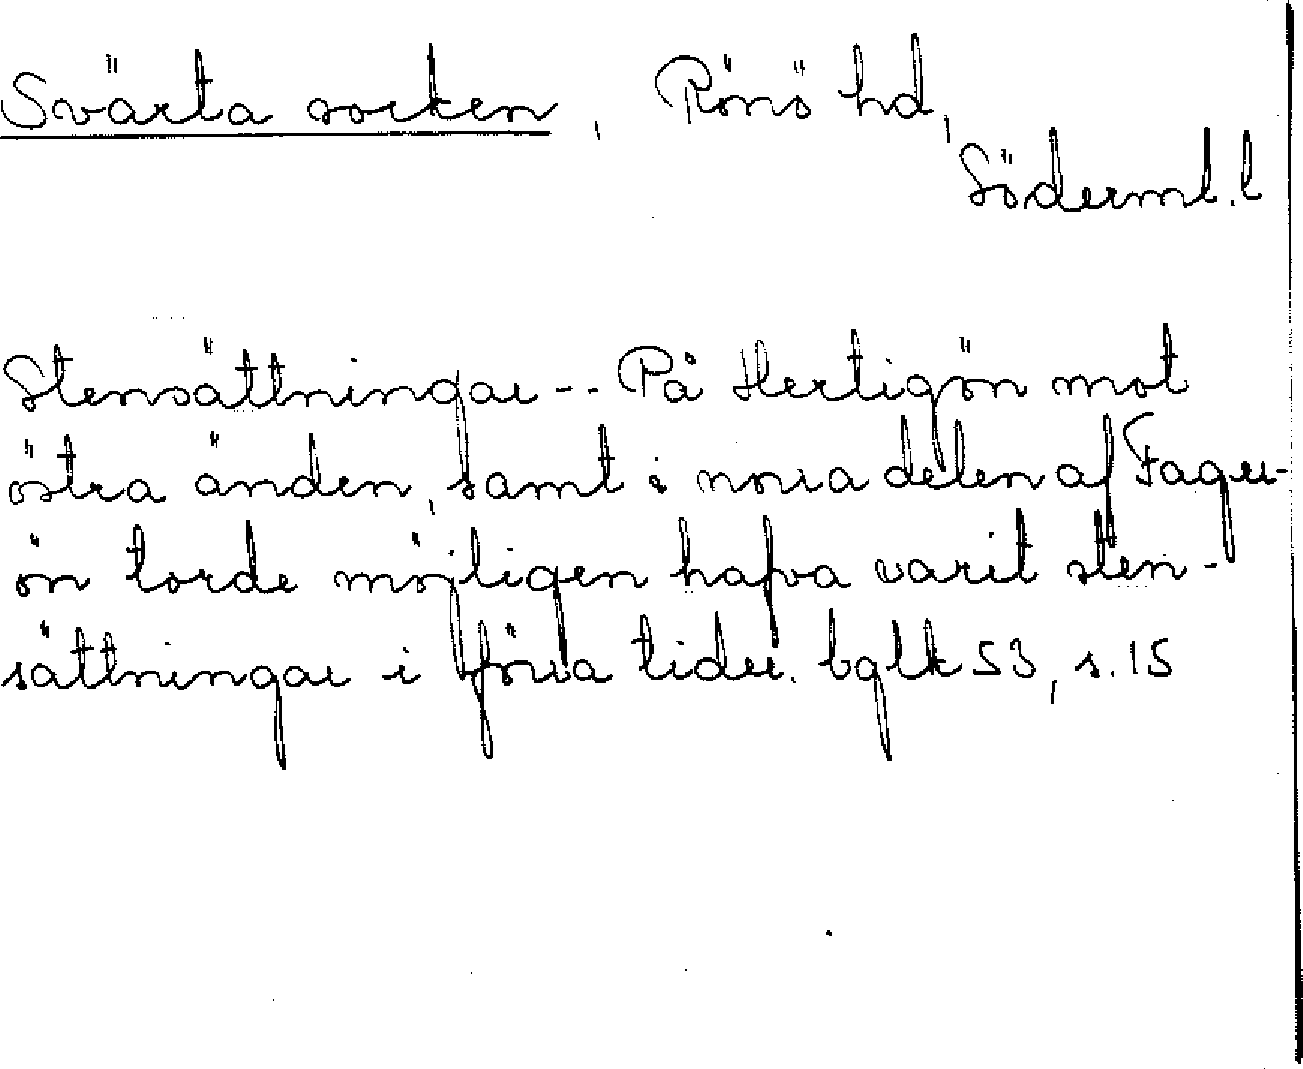 Svärta socken, Rönö hd,
Söderml. l
Stensättningar -- På Hertigön mot
östra änden, samt i norra delen af Fager-
ön torde möjligen hafva varit sten-
sättningar i förra tider. bglk 53, s. 15